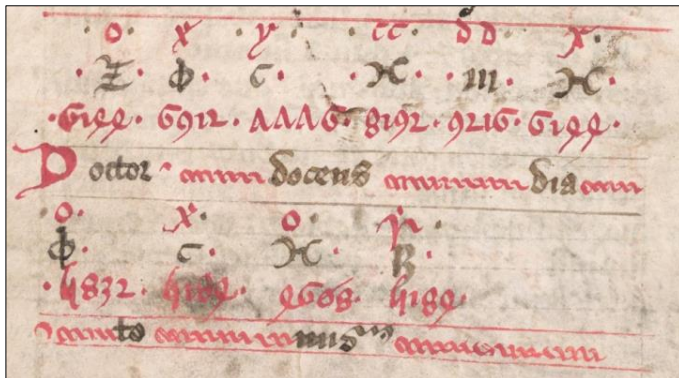 o · x · y · cc · dd · x ·
· Ƶ · ϕ · C · H · m · H ·
· 6144 · 6912 · 7776 · 8192 · 9216 · 6144 ·
Doctor docens dia
· o · x · o ·
ϕ · C · H · B ·
· 5832 · 5184 · 4608 · 5184 ·
to nus